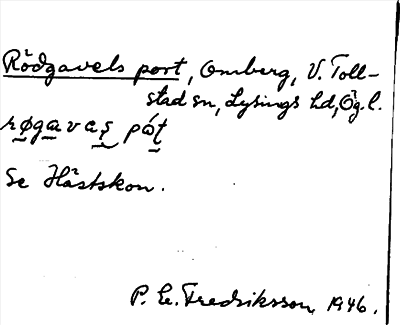 Rödgavels port, Omberg, V. Toll-
stad sn, Lysings hd, Ög. l.
røgavaṣ pót̰
Se Hästskon.
P. E. Fredriksson, 1946.